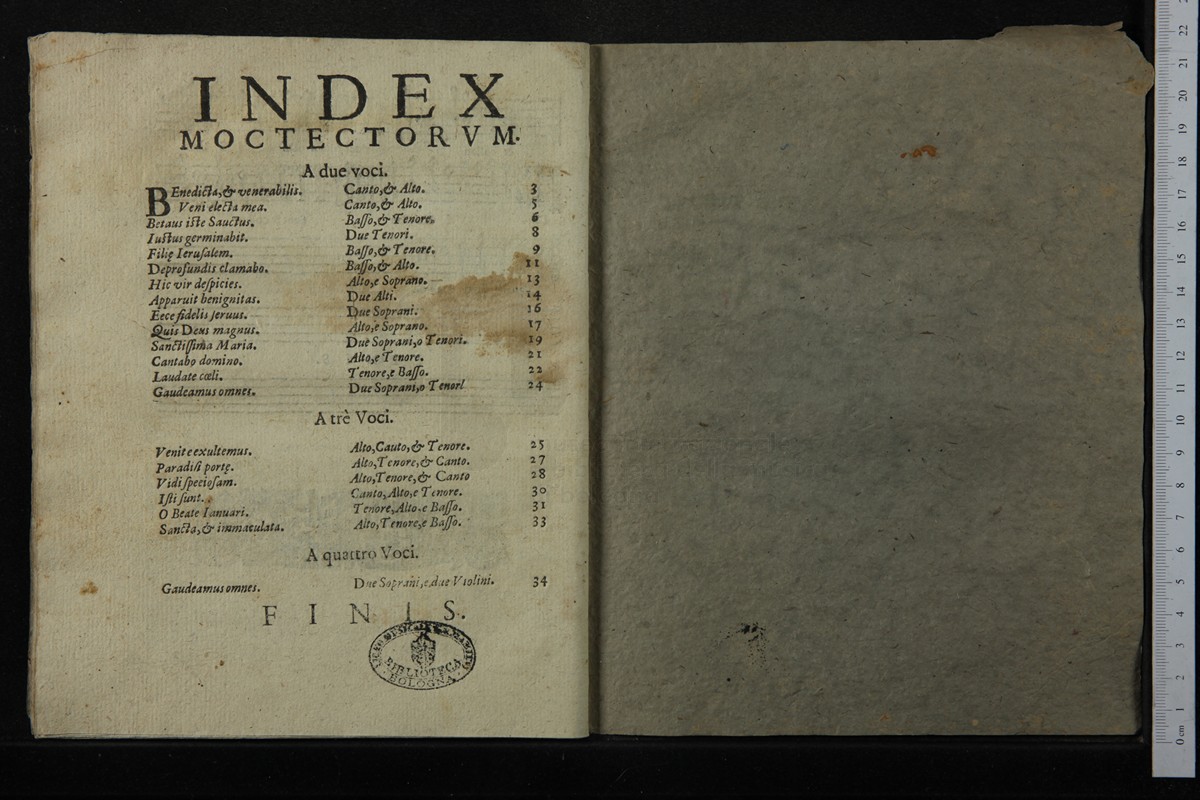 INDEX
MOCTECTORVM.
A due voci.
BEnedicta,& venerabilis. Canto,& Alto. 3
Veni electa mea. Canto,& Alto. 5
Betaus iste Sauctus. Basso,& Tenore. 6
Iustus germinabit. Due Tenori. 8
Filię Ierusalem. Basso,& Tenore. 9
Deprofundis clamabo. Basso,& Alto. 11
Hic vir despicies. Alto,e Soprano. 13
Apparuit benignitas. Due Alti. 14
Eece fidelis seruus. Due Soprani. 16
Quis Deus magnus. Alto,e Soprano. 17
Sanctissima Maria. Due Soprani,o Tenori. 19
Cantabo domino. Alto,e Tenore. 21
Laudate cœli. Tenore,e Basso. 22
Gaudeamus omnes. Due Soprani,o Tenorl 24
A trè Voci.
Venite exultemus. Alto,Cauto,& Tenore. 25
Paradisi portę. Alto,Tenore,& Canto. 27
Vidi speciosam. Alto,Tenore,& Canto 28
Isti sunt. Canto,Alto,e Tenore. 30
O Beate Ianuari. Tenore,Alto.e Basso. 31
Sancta,& immaculata. Alto,Tenore,e Basso. 33
A quattro Voci.
Gaudeamus omnes. Due Soprani,e due Violini. 34
FINIS.
BIBLIOTECA
BOLOGNA
0 cm 1 2 3 4 5 6 7 8 9 10 11 12 13 14 15 16 17 18 19 20 21 22